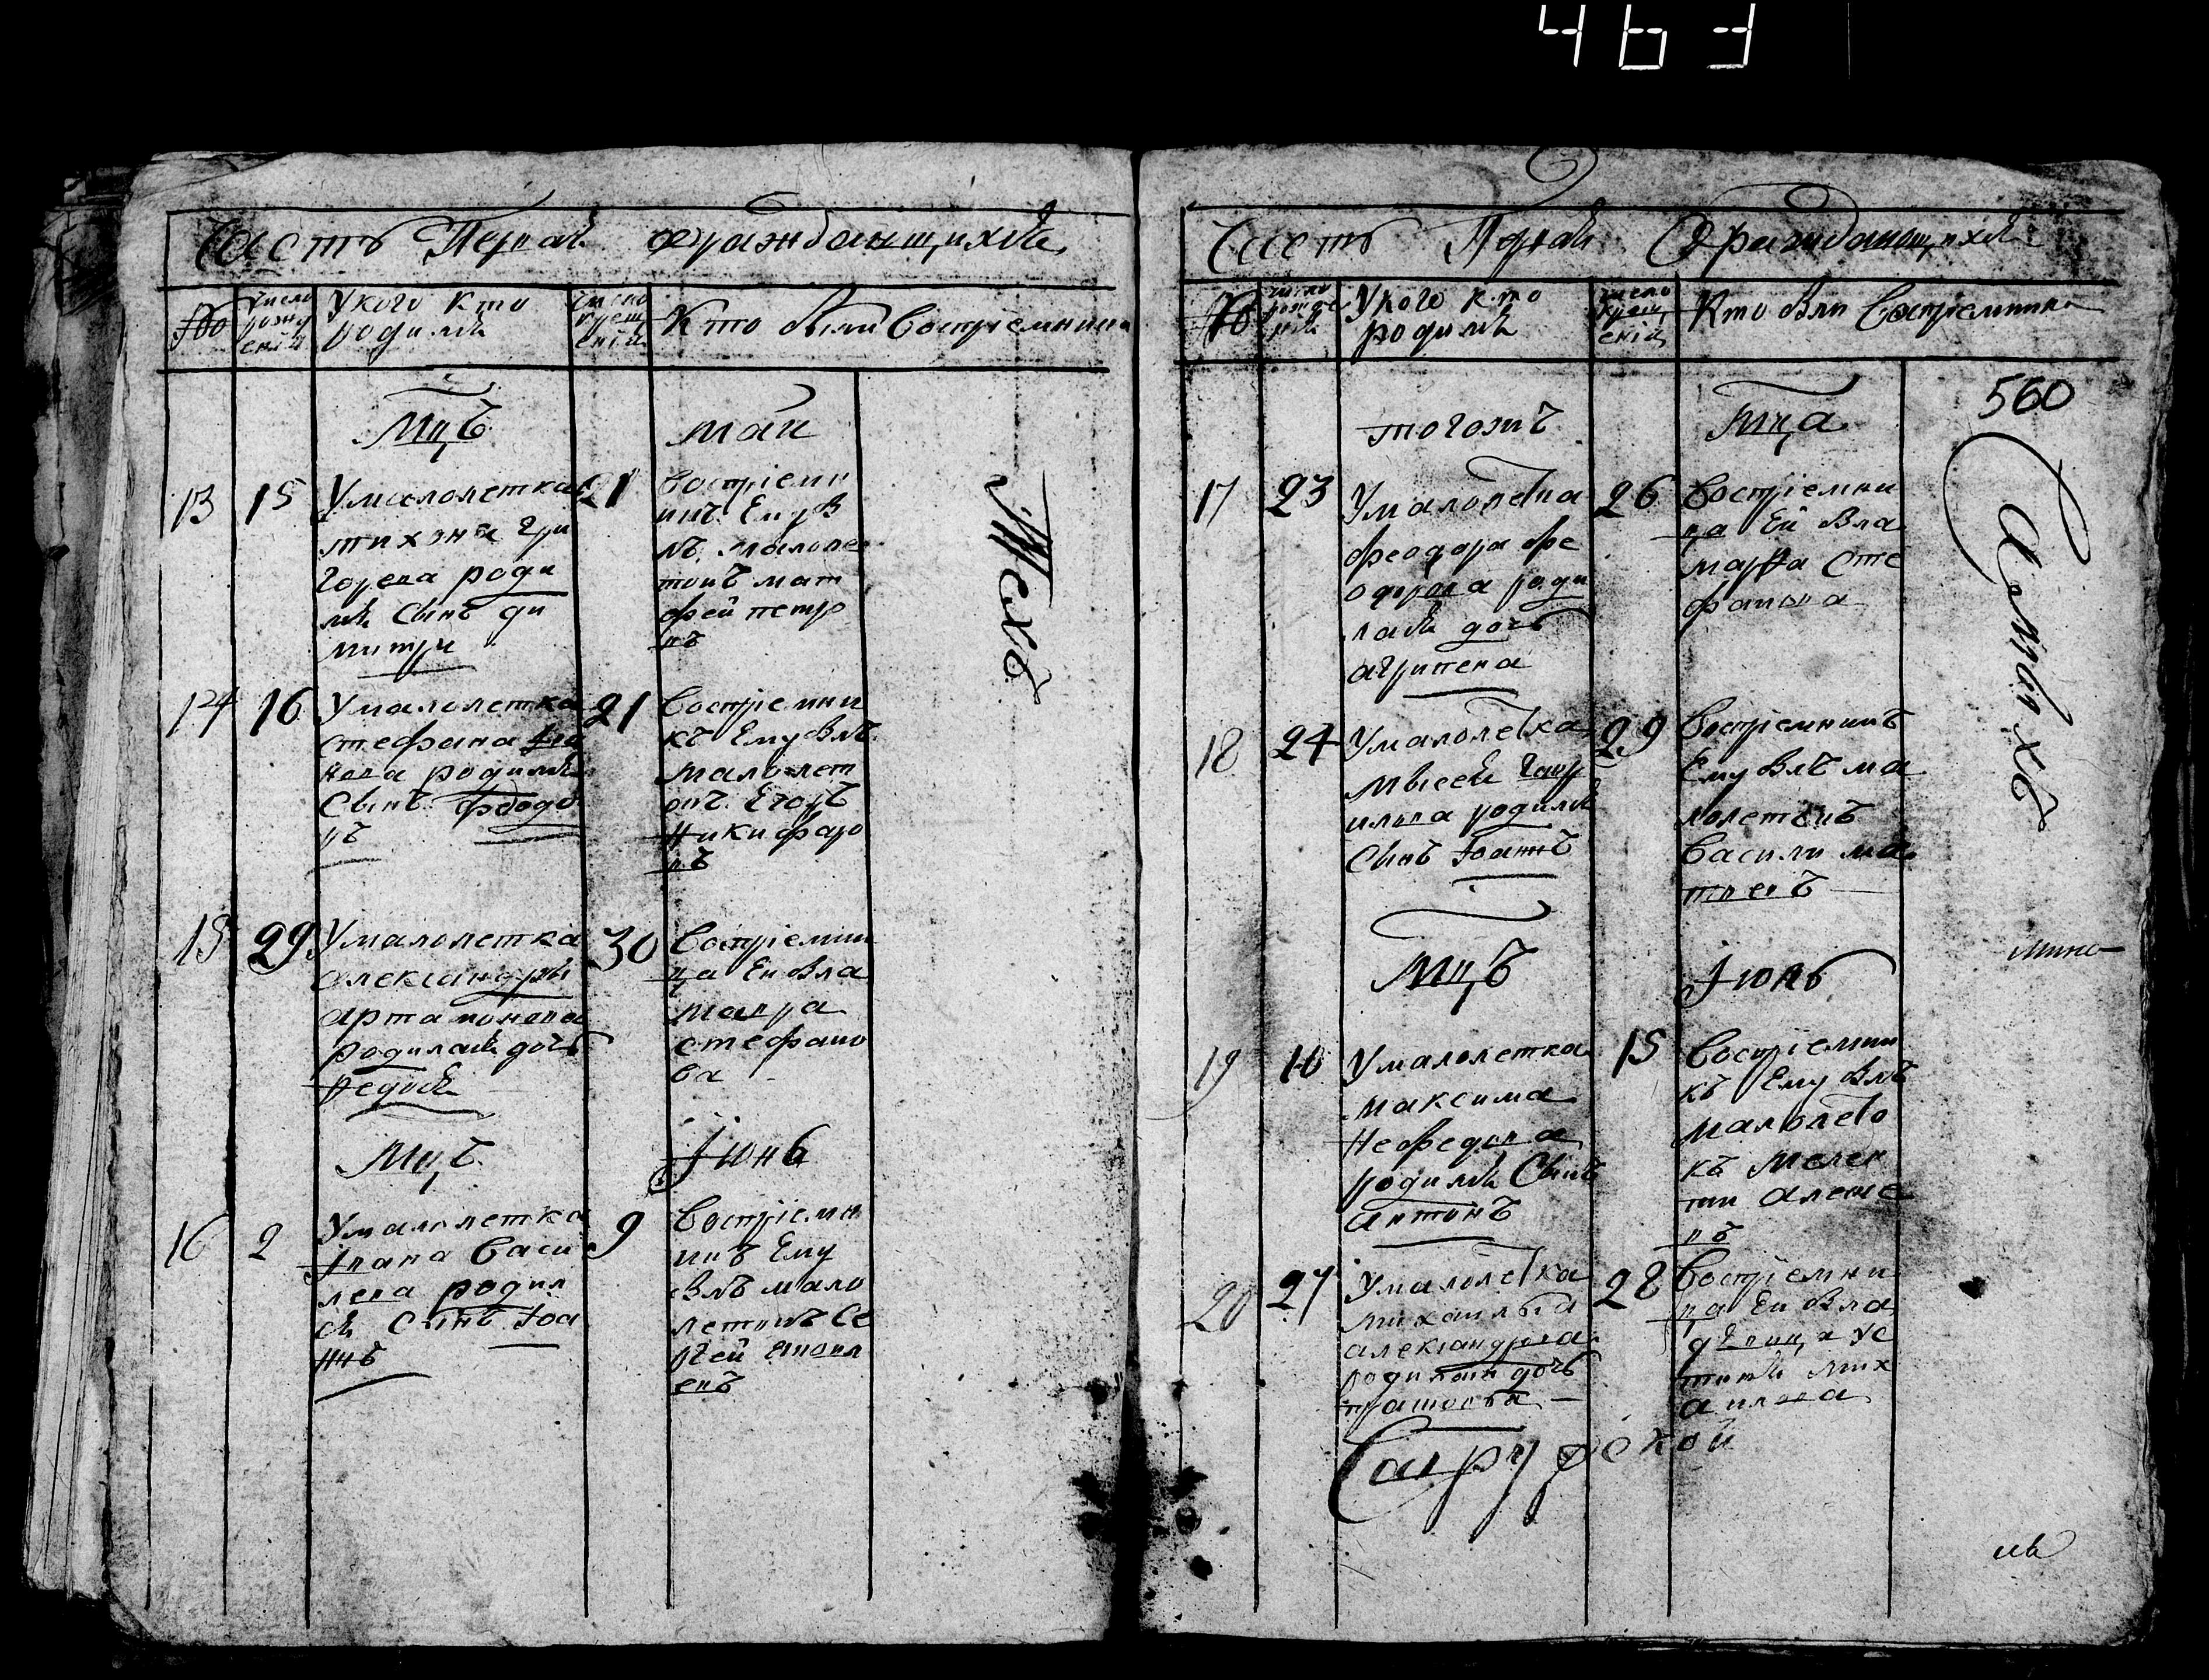 463
Часть Первая о раждающихся
число рожденій
У кого кто родился
число крещеній
Кто были Восприемники
Мцъ
маи
13
15
У малолетка
тихона гри
горева роди
лся Сынъ ди
митри
21
Восприемн
икъ Ему б
лъ малоле
токъ мат
фей петро
въ
14
16
У малолетка
стефана
нова родился
Сынъ феодо
ръ
21
Восприемни
къ Ему Блъ
малолет
окъ Егоръ
Никифаро
въ
15
29
У малолетка
александры
артамонова
родилася дочь
Федося
30
Восприемни
ца Еи Бла
мавра
стефано
ва
Мцъ
Іюнь
16
2
У малолетка
Івана Васи
лева родил
ся Сынъ Іоа
ннъ
9
Восприемн
икъ Ему
Блъ мало
летокъ Се
ргей
евъ
Тѣхъ
Часть Первая О раждающихся
число рожде нія
У кого кто родился
число крещ енія
Кто Бли Восприемники
560
тогожъ
Мца
17
23
У малолетка
феодора фе
одорова роди
лася дочь
агрипена
26
Восприемни
ца Ей Бла
марфа Сте
фанова
18
24
У малолетка
Мысея Гавр
илова родился
Сынъ Іоаннъ
29
Восприемникъ
Ему Блъ ма
лолетокъ
Васили ма
твевъ
Мцъ
Іюнь
19
10
У малолетка
максима
Нефедова
родился Сынъ
антонъ
15
Восприемни
къ Ему Блъ
малолето
къ Мелен
ти алексе
въ
20
27
У малолетка
михаилы
александрова
родилася дочь
28
Восприемни
ца Еи Бла
дѣвица Ус
тиня Мих
аилова